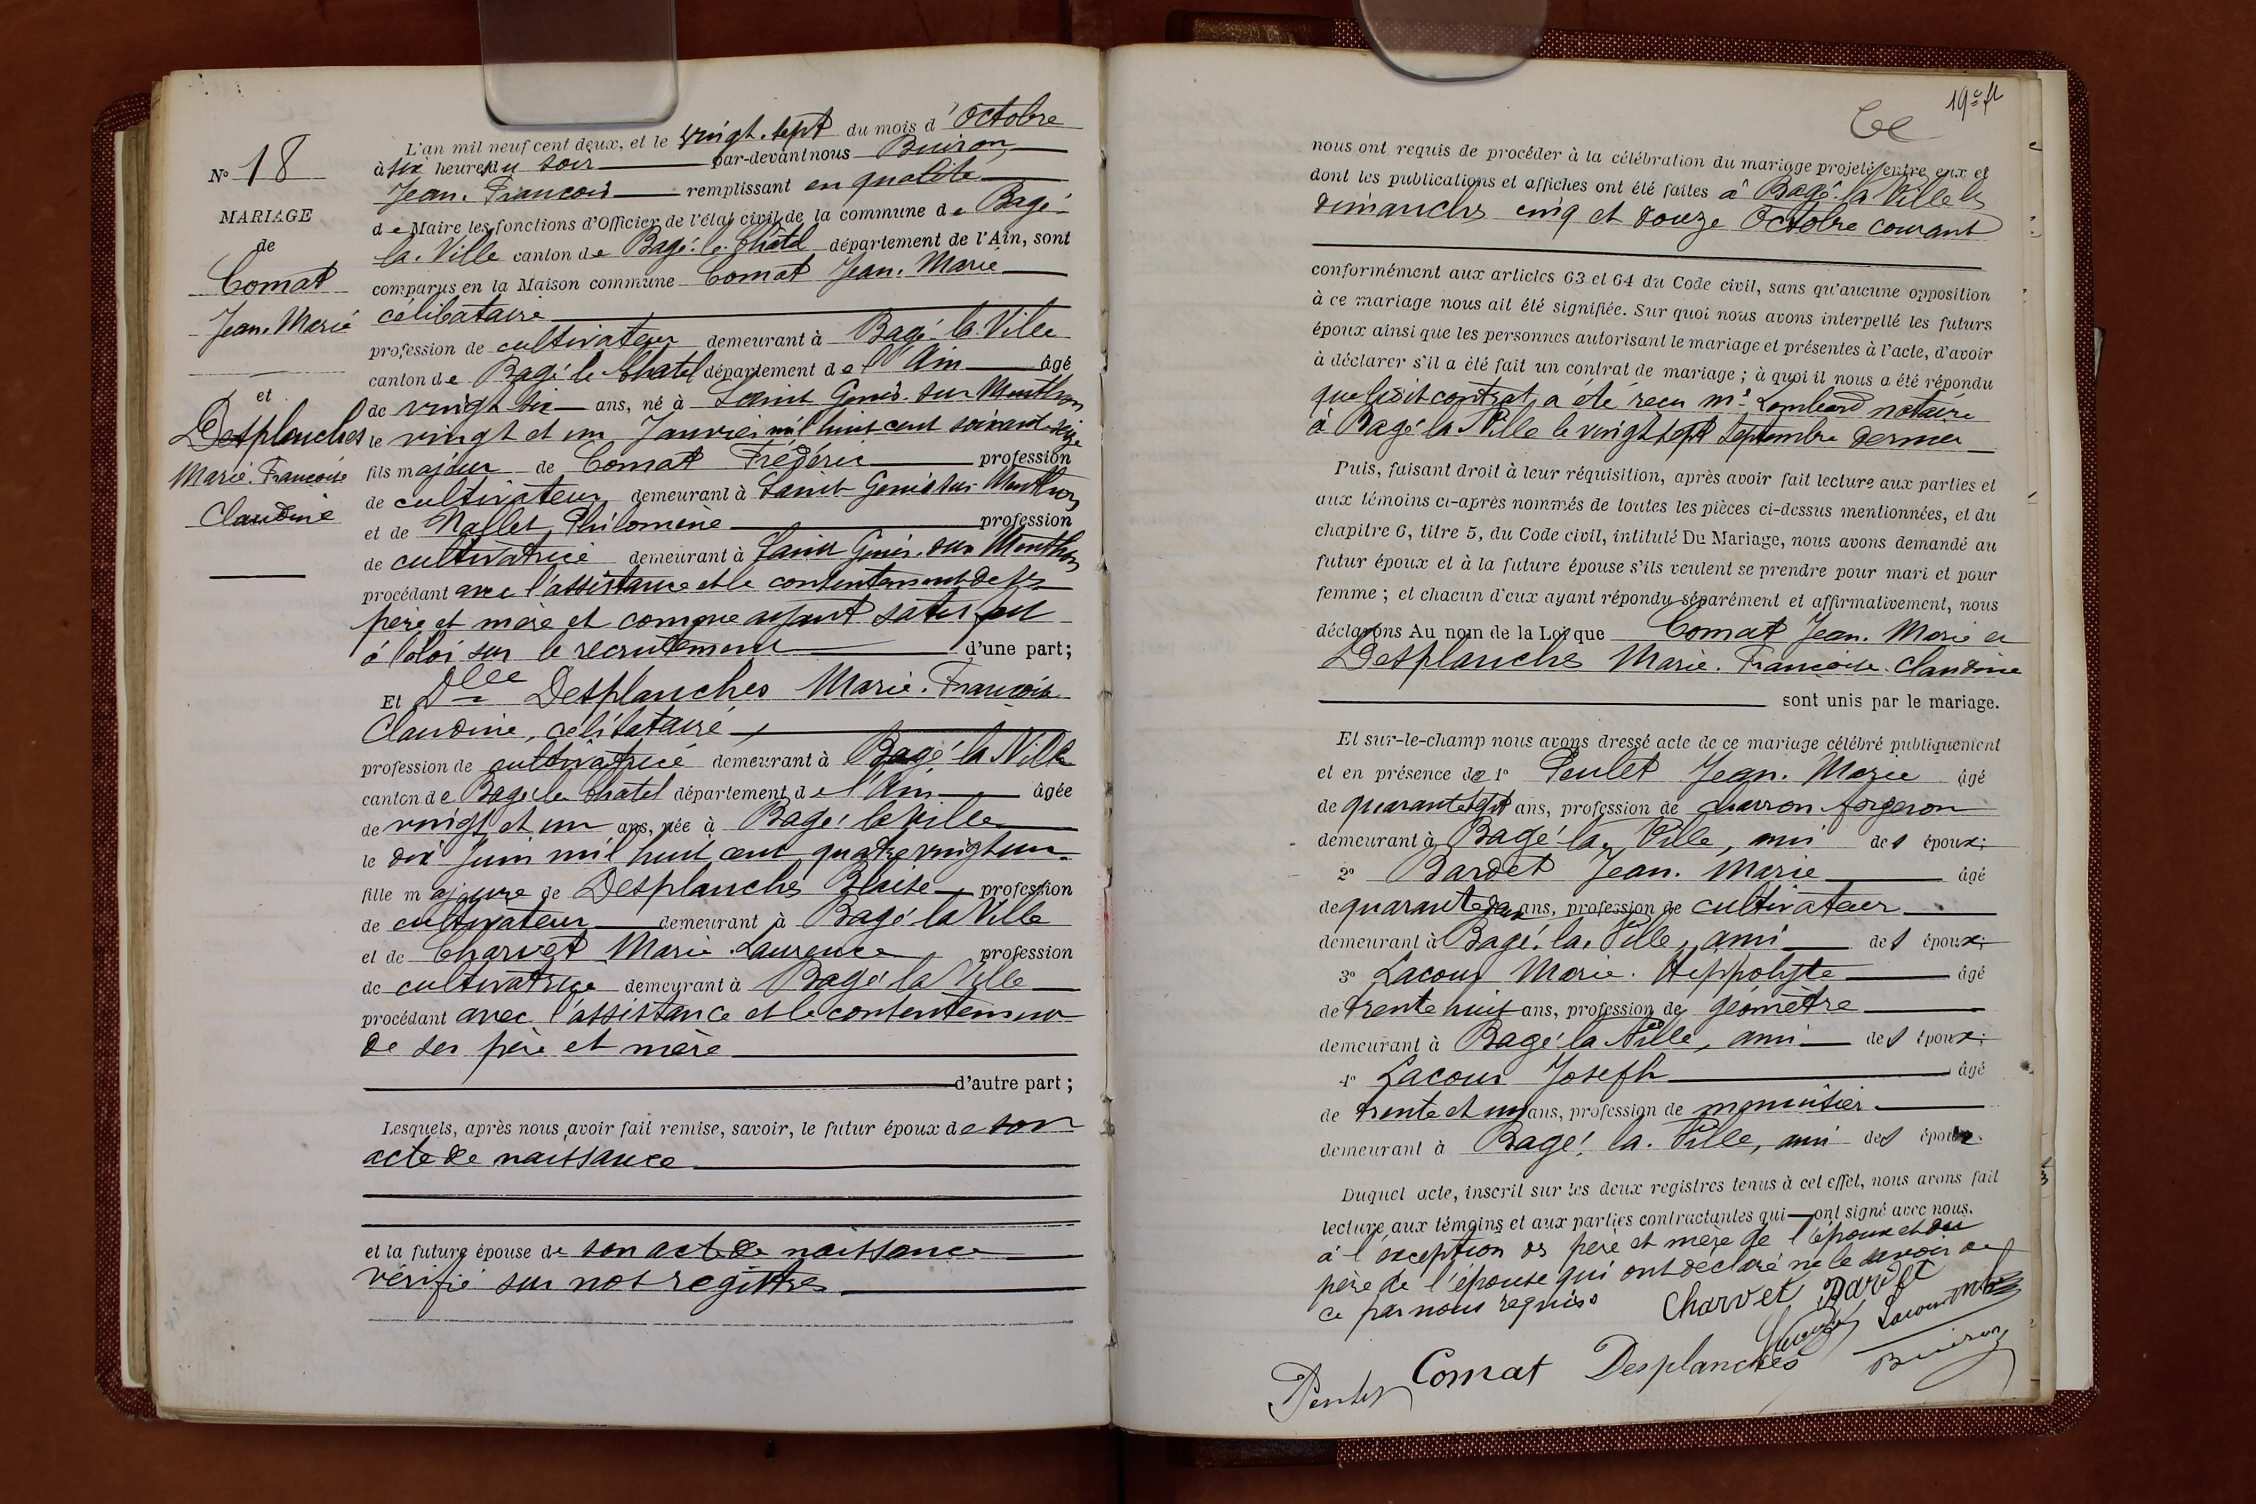 N° 18
MARIAGE
de
Comat
Jean. Marie
et
Desplanches
Marie. Françoise
Claudine
L'an mil neuf cent deux, et le vingt. sept du mois d'Octobre
à six heures du soir par-devant nous Buiron
Jean. François remplissant en qualité
de Maire les fonctions d'Officier de l'état civil de la commune de Bagé-
la. Ville canton de Bagé. le. Châtel département de l'Ain, sont
comparus en la Maison commune Comat Jean. Marie
célibataire
profession de cultivateur demeurant à Bagé. la. Ville
canton de Bagé le Chatel département de l'Ain âgé
de vingt six ans, né à Saint Genis. sur Menthon
le vingt et un Janvier mil huit cent soixante seize
fils majeur de Comat Frédéric profession
de cultivateur demeurant à Saint Genis sur Menthon
et de Nallet Philomène profession
de cultivatrice demeurant à Saint Genis. sur Menthon
procédant avec l'assistance et le consentement de ses
père et mère et comme ayant satisfait
à la loi sur le recrutement d'une part;
Et Dlle Desplanches Marie. Françoise
Claudine, célibataire
profession de cultivatrice demeurant à Bagé la Ville
canton de Bagé le Chatel département de l'Ain âgée
de vingt et un ans, née à Bagé la Ville
le dix Juin mil huit cent quatre vingt un
fille majeure de Desplanches Blaise profession
de cultivateur demeurant à Bagé la Ville
et de Charvet Marie Laurence profession
de cultivatrice demeurant à Bagé la Ville
procédant avec l'assistance et le consentement
de ses père et mère
d'autre part;
Lesquels, après nous avoir fait remise, savoir, le futur époux de son
acte de naissance
et la future épouse de son acte de naissance
vérifié sur nos registres
19e ft
nous ont requis de procéder à la célébration du mariage projeté entre eux et
dont les publications et affiches ont été faites à Bagé. la. Ville les
dimanches cinq et douze Octobre courant
conformément aux articles 63 et 64 du Code civil, sans qu'aucune opposition
à ce mariage nous ait été signifiée. Sur quoi nous avons interpellé les futurs
époux ainsi que les personnes autorisant le mariage et présentes à l'acte, d'avoir
à déclarer s'il a été fait un contrat de mariage; à quoi il nous a été répondu
que ledit contrat a été reçu Me Lombard notaire
à Bagé la Ville le vingt sept Septembre dernier
Puis, faisant droit à leur réquisition, après avoir fait lecture aux parties et
aux témoins ci-après nommés de toutes les pièces ci-dessus mentionnées, et du
chapitre 6, titre 5, du Code civil, intitulé Du Mariage, nous avons demandé au
futur époux et à la future épouse s'ils veulent se prendre pour mari et pour
femme; et chacun d'eux ayant répondu séparément et affirmativement, nous
déclarons Au nom de la Loi que Comat Jean. Marie et
Desplanches Marie. Françoise. Claudine
sont unis par le mariage.
Et sur-le-champ nous avons dressé acte de ce mariage célébré publiquement
et en présence de 1° Peulet Jean. Marie âgé
de quarante sept ans, profession de charron-forgeron
demeurant à Bagé la Ville, ami des époux;
2° Bardet Jean. Marie âgé
de quarante deux ans, profession de cultivateur
demeurant à Bagé. la. Ville, ami des époux;
3° Lacour Marie. Hippolyte âgé
de trente huit ans, profession de géomètre
demeurant à Bagé la Ville, ami des époux;
4° Lacour Joseph âgé
de trente et un ans, profession de menuisier
demeurant à Bagé. la. Ville, ami des époux.
Duquel acte, inscrit sur les deux registres tenus à cet effet, nous avons fait
lecture aux témoins et aux parties contractantes qui ont signé avec nous.
à l'exception des père et mère de l'époux et du
père de l'épouse qui ont déclaré ne le savoir de
ce par nous requis.
Charvet Bardet
Lacour
Peulet Comat Desplanches Buiron